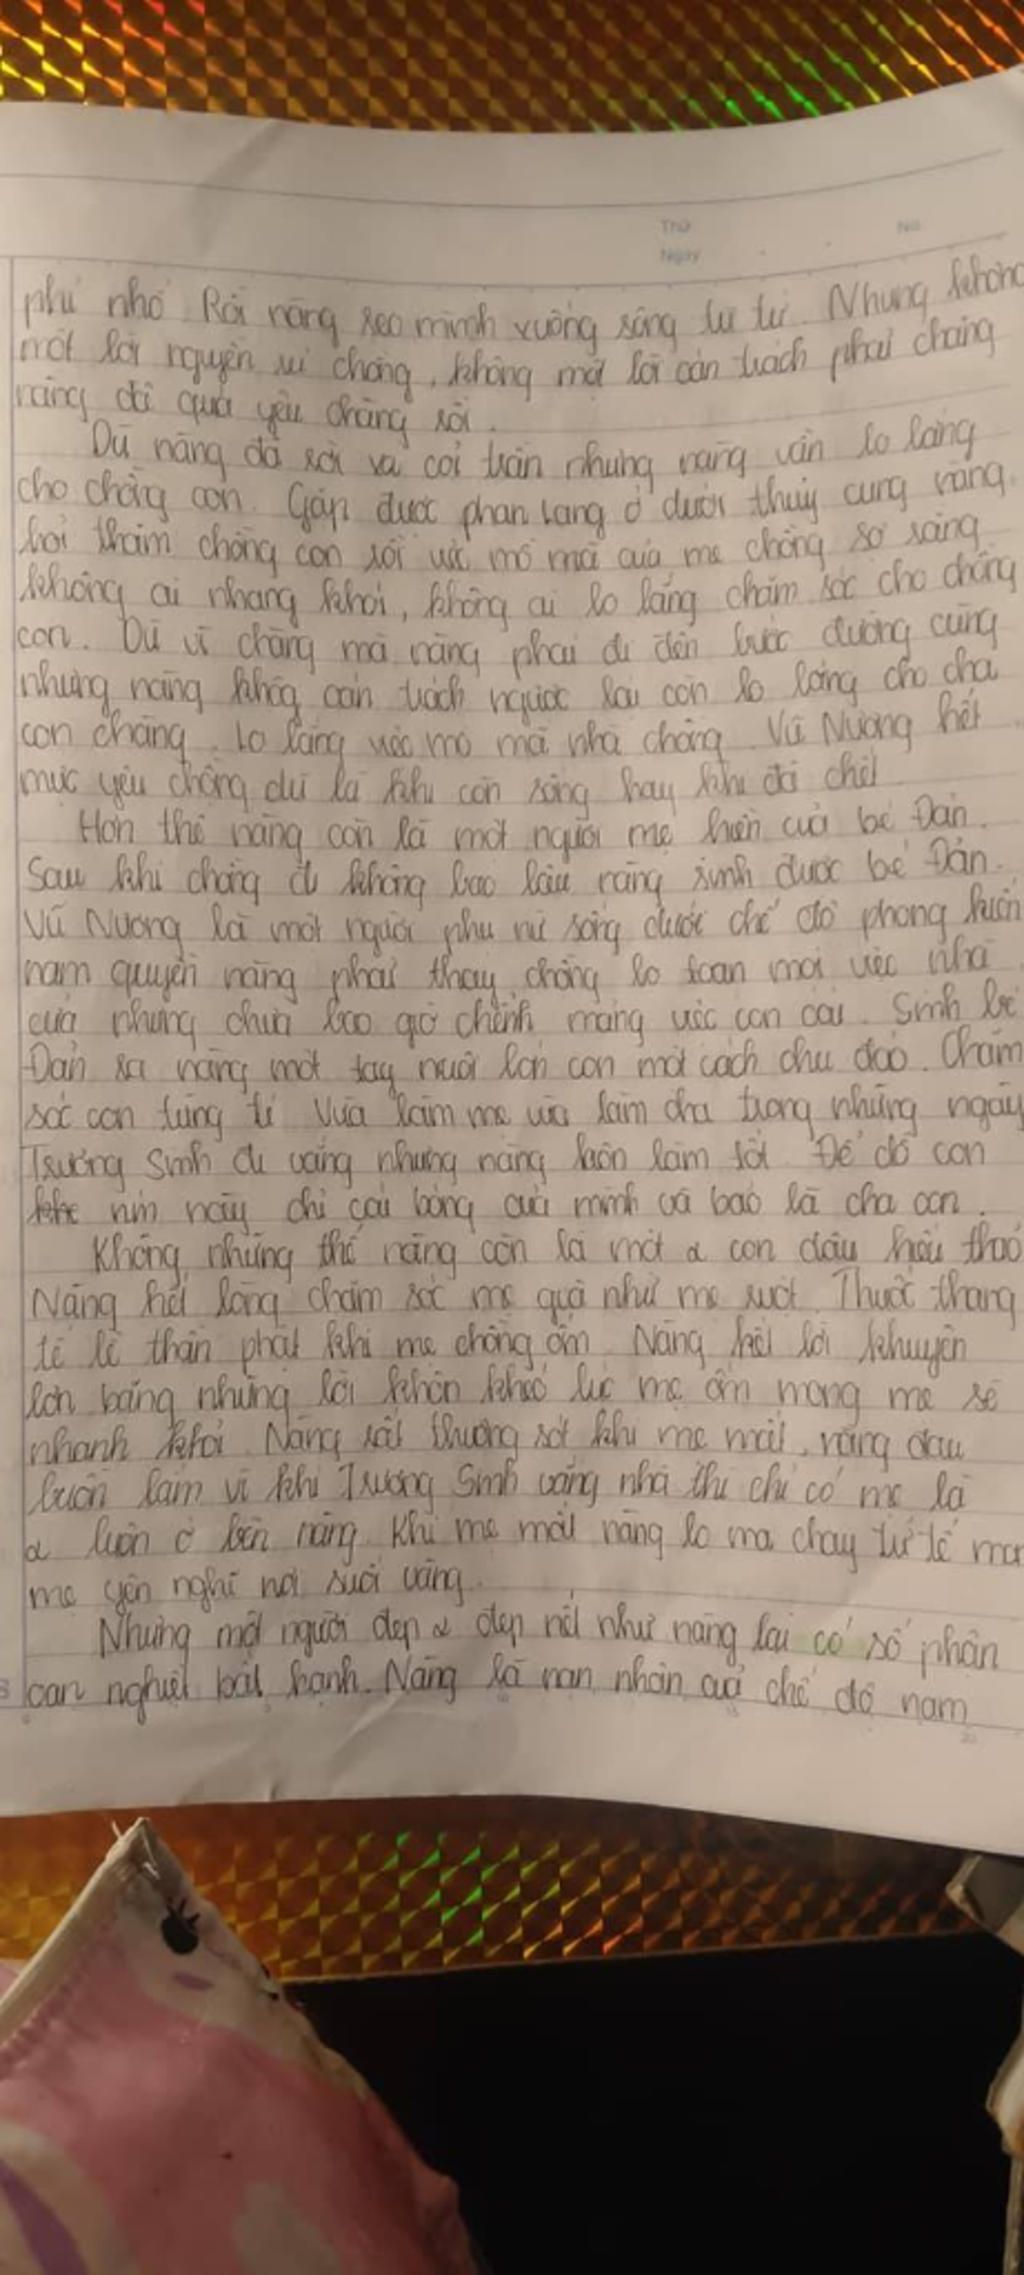 Thứ
No.
Ngày
phỉ nhổ. Rồi nàng reo mình xuống sông tự tử. Nhưng không
một lời nguyền rủi chồng, không một lời oán trách phải chăng
nàng đã quá yêu chàng rồi.
Dù nàng đã rời xa cõi trần nhưng nàng vẫn lo lắng
cho chồng con. Gặp được phan lang ở dưới thủy cung nàng
hỏi thăm chồng con rồi việc mồ mả của mẹ chồng sợ rằng
không ai nhang khói, không ai lo lắng chăm sóc cho chồng
con. Dù vì chàng mà nàng phải đi đến bước đường cùng
nhưng nàng khôg oán trách ngược lại còn lo lắng cho cha
con chàng. lo lắng việc mồ mả nhà chồng. Vũ Nương hết
mực yêu chồng dù là khi còn sống hay khi đã chết
Hơn thế nàng còn là một người mẹ hiền của bé Đản.
Sau khi chồng đi không bao lâu nàng sinh được bé Đản.
Vũ Nương là một người phụ nữ sống dưới chế độ phong kiến
nam quyền nàng phải thay chồng lo toan mọi việc nhà
cửa nhưng chưa bao giờ chểnh mảng việc con cái. Sinh bé
Đản ra nàng một tay nuôi lớn con một cách chu đáo. Chăm
sóc con từng tí. Vừa làm mẹ vừa làm cha trong những ngày
Trương Sinh đi vắng nhưng nàng luôn làm tốt. Để dỗ con
nín nàng chỉ cái bóng của mình và bảo là cha con.
Không những thế nàng còn là một con dâu hiếu thảo
Nàng hết lòng chăm sóc mẹ già như mẹ ruột. Thuốc thang
tế lễ thần phật khi mẹ chồng ốm. Nàng hết lời khuyên
lơn bằng những lời khôn khéo lúc mẹ ốm mong mẹ sẽ
nhanh khỏi. Nàng rất thương sót khi mẹ mất, nàng đau
buồn lắm vì khi Trương Sinh vắng nhà thì chỉ có mẹ là
luôn ở bên nàng. Khi mẹ mất nàng lo ma chay tử tế
mẹ yên nghỉ nơi suối vàng.
Nhưng một người đẹp đẹp nết như nàng lại có số phận
oan nghiệt bất hạnh. Nàng là nạn nhân của chế độ nam